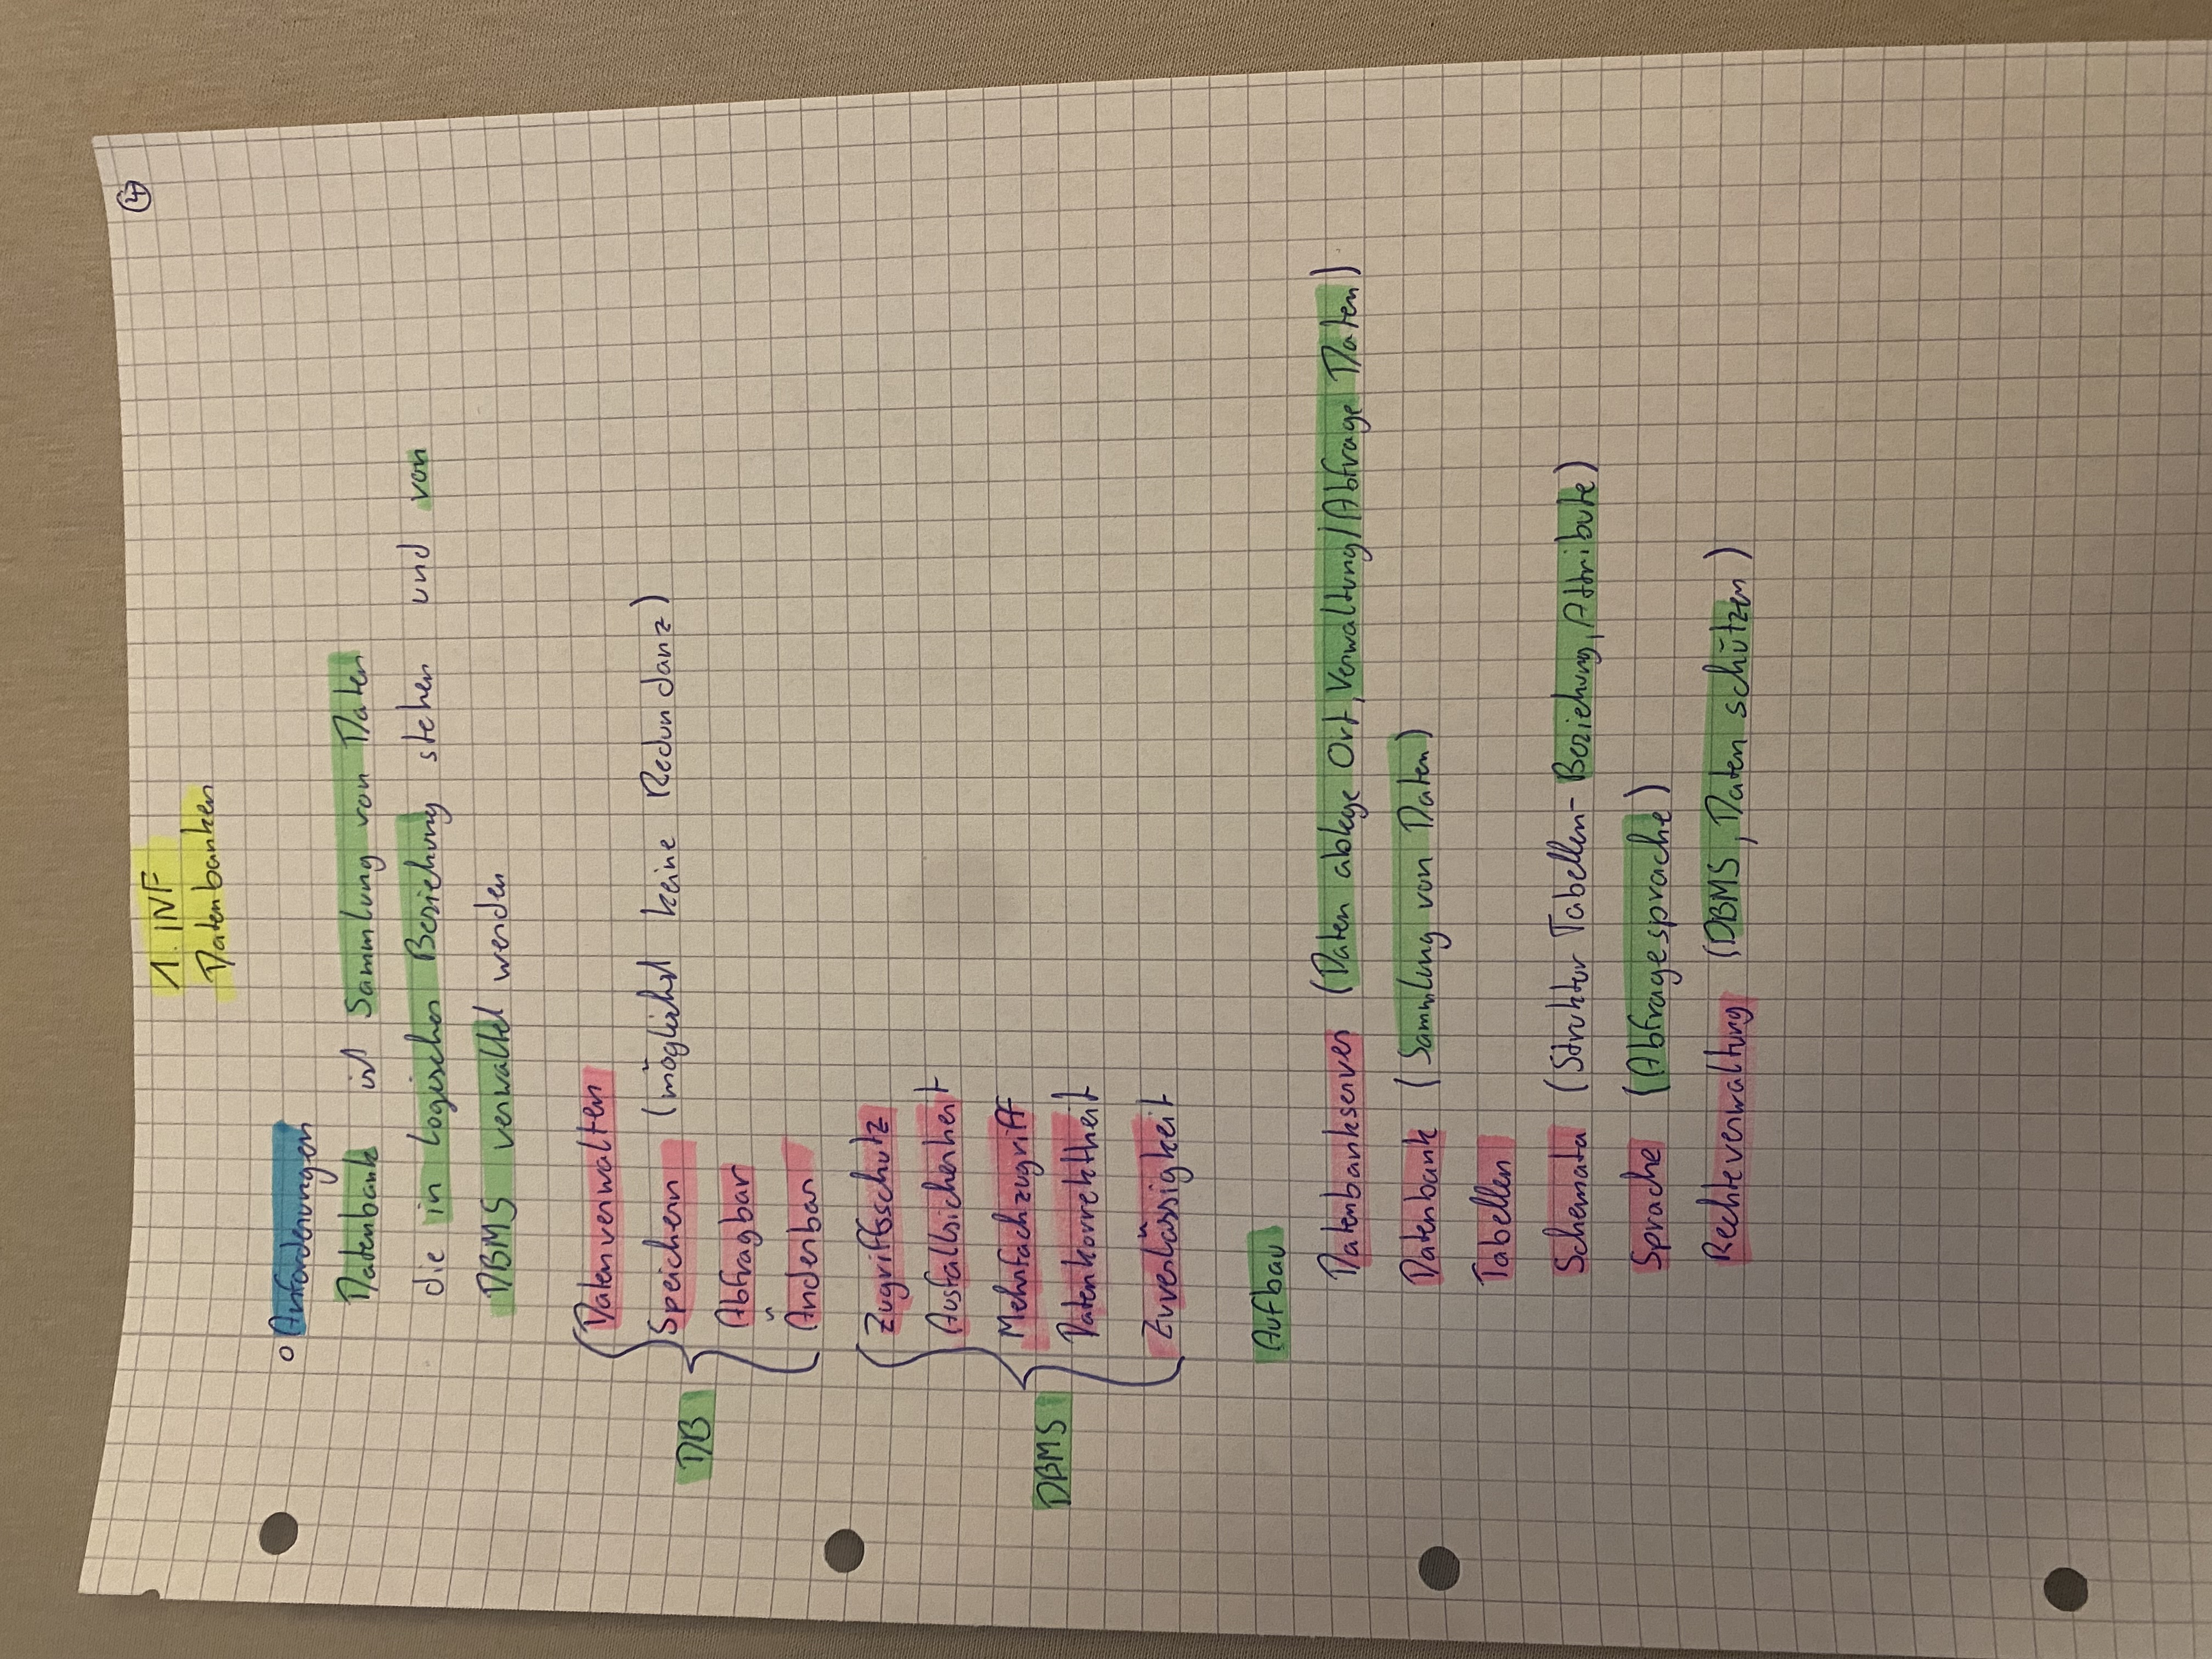 ④
1. INF
Datenbanken
o Anforderungen
Datenbank ist Sammlung von Daten
die in logischer Beziehung stehen und von
DBMS verwaltet werden
DB
Datenverwalten
Speichern (möglichst keine Redundanz)
Abfragbar
Änderbar
DBMS
Zugriffsschutz
Ausfallsicherheit
Mehrfachzugriff
Datenkorrektheit
Zuverlässigkeit
Aufbau
Datenbankserver (Daten ablege Ort, Verwaltung/Abfrage Daten)
Datenbank (Sammlung von Daten)
Tabellen
Schemata (Struktur Tabellen- Beziehung, Attribute)
Sprache (Abfragesprache)
Rechteverwaltung (DBMS, Daten schützen)